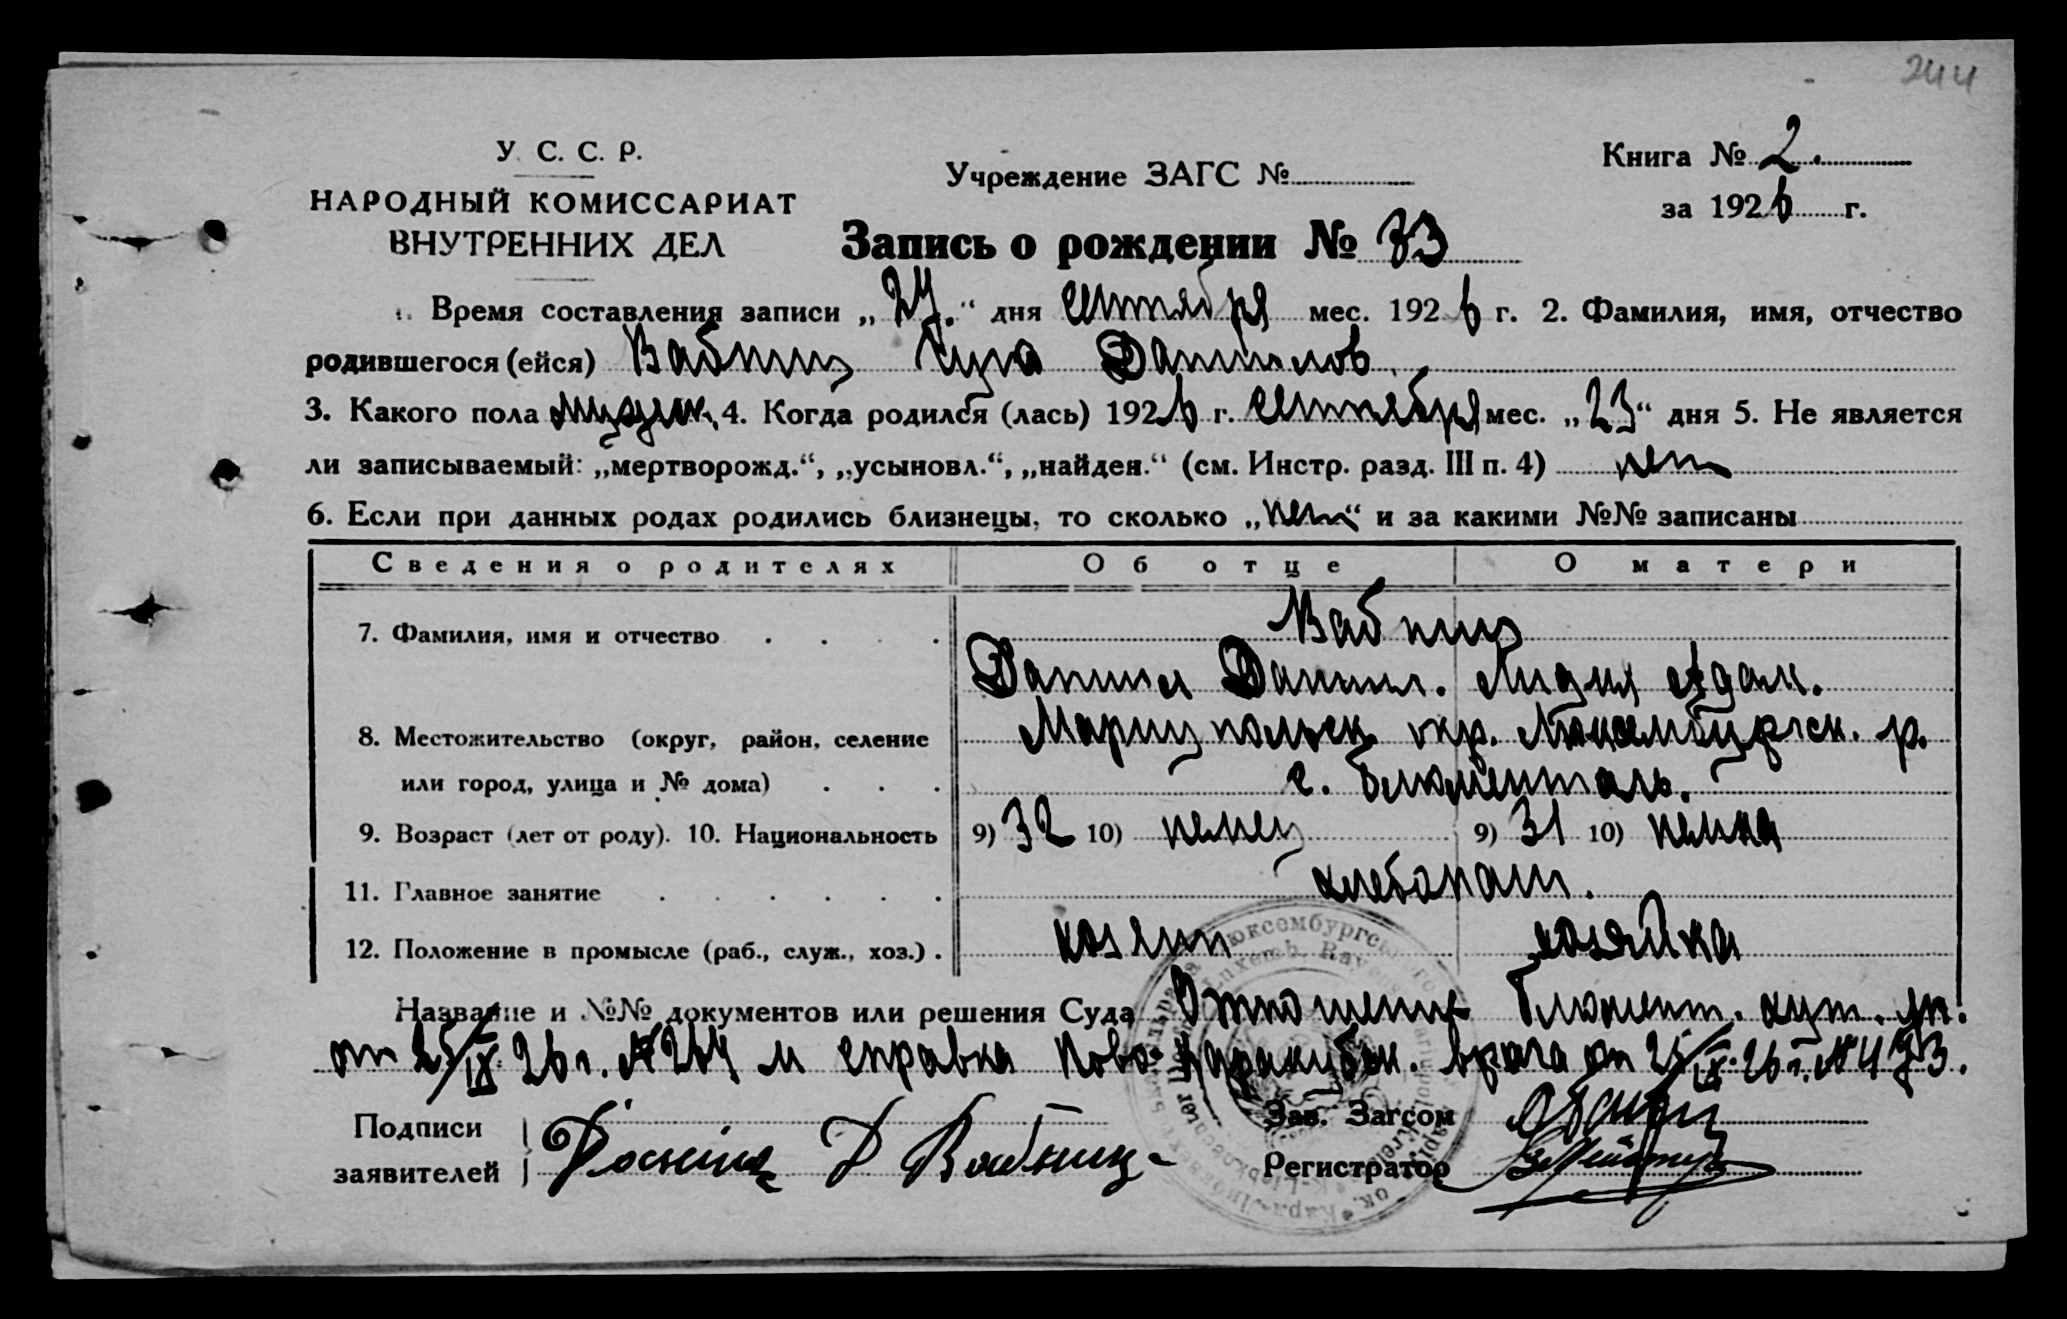 244
У. С. С. Р.
НАРОДНЫЙ КОМИССАРИАТ
ВНУТРЕННИХ ДЕЛ
Учреждение ЗАГС №
Книга № 2.
за 1926 г.
Запись о рождении № 73
1. Время составления записи „27.“ дня сентября мес. 1926 г. 2. Фамилия, имя, отчество
родившегося (ейся) Вабниц Гуго Данилов.
3. Какого пола мужск. 4. Когда родился (лась) 1926 г. сентября мес. „23“ дня 5. Не является
ли записываемый: „мертворожд.“, „усыновл.“, „найден.“ (см. Инстр. разд. III п. 4) нет
6. Если при данных родах родились близнецы, то сколько „нет“ и за какими №№ записаны
Сведения о родителях Об отце О матери
7. Фамилия, имя и отчество Вабниц
Данил Данил. Лидия Адам.
8. Местожительство (округ, район, селение Мариупольск. окр. Люксембургск. р.
или город, улица и № дома) с. Блюменталь.
9. Возраст (лет от роду). 10. Национальность 9) 32 10) немец 9) 31 10) немка
11. Главное занятие хлебопаш.
12. Положение в промысле (раб., служ., хоз.) хозяин хозяйка
Название и №№ документов или решения Суда Отношение Блюмент. хут. уп.
от 25/IX 26 г. № и справка Ново-Каракубск. врача от 25/IX-26 г. № 473.
Подписи
заявителей
Д Вабниц
Зав. Загсом
Регистратор